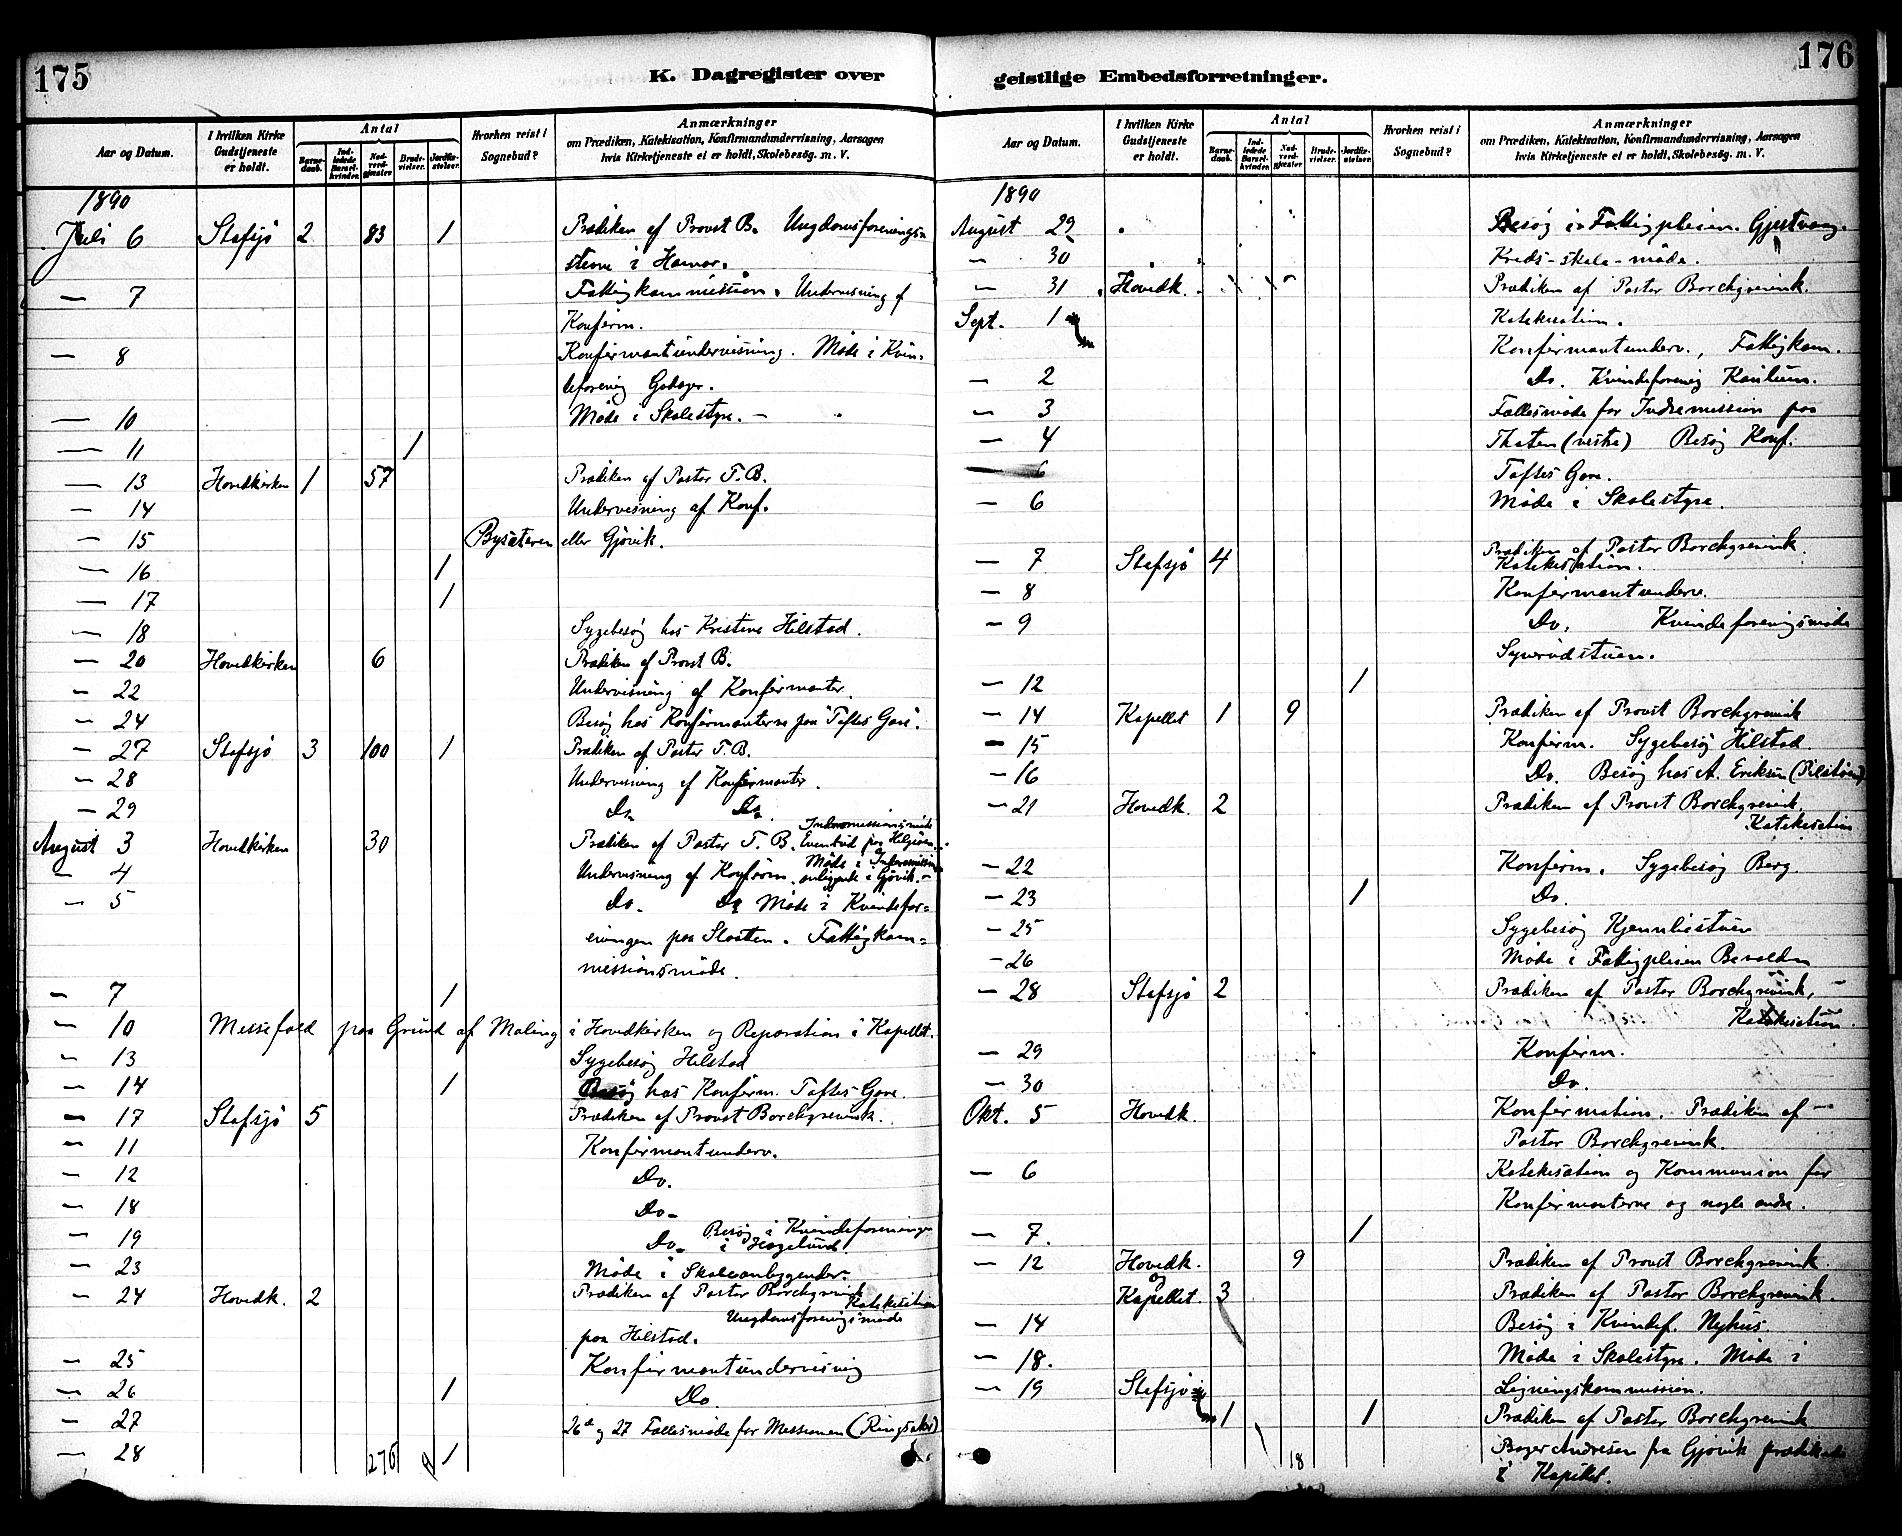 175
K. Dagregister over
Aar og Datum.
I hvilken Kirke Gudstjeneste er holdt.
Antal
Barnedaab.
Indledede Barselkvinder.
Nadverdgjester
Brudevielser.
Jordfæstelser.
Hvorhen reist i Sognebud?
Anmærkninger
om Prædiken, Katekisation, Konfirmandundervisning, Aarsagen
hvis Kirketjeneste ei er holdt, Skolebesög. m. V.
1890
Juli 6 Stafsjö 2 83 1 Prædiken af Provst B. Ungdomsforenings-
stevne i Hamar.
— 7 Fattigkommission. Undervisning af
Konfirm.
— 8 Konfirmantundervisning. Møde i Kvin-
deforening Godager.
— 10 Møde i Skolestyre. —
— 11 1
— 13 Hovedkirken 1 57 Prædiken af Pastor T. B.
— 14 Undervisning af Konf.
— 15 Bysæteren eller Gjøvik.
— 16 1
— 17 1
— 18 Sygebesøg hos Kristine Hilstad.
— 20 Hovedkirken 6 Prædiken af Provst B.
— 22 Undervisning af Konfirmanter.
— 24 Besøg hos Konfirmanterne paa "Toftes Gave".
— 27 Stafsjö 3 100 1 Prædiken af Pastor T. B.
— 28 Undervisning af Konfirmanter.
— 29 Do. Do.
August 3 Hovedkirken 30 Prædiken af Pastor T. B. Indremissionsmøde
Eventvid paa Helgøen.
— 4 Undervisning af Konfirm. Møde i Indremission
anliggende i Gjøvik. —
— 5 Do. Do Møde i Kvindefor-
eningen paa Slaatten. Fattigkom-
missionsmøde.
— 7 1
— 10 Messefald paa Grund af Maling i Hovedkirken og Reparation i Kapellet.
— 13 Sygebesøg Hilstad
— 14 1 Besøg hos Konfirm. Toftes Gave.
— 17 Stafsjö 5 Prædiken af Provst Borchgrevink.
— 11 Konfirmantunderv.
— 12 Do.
— 18 Do.
— 19 Do. Besøg i Kvindeforeningen
i Hagelund
— 23 Møde i Skoleanliggender.
— 24 Hovedk. 2 Prædiken af Pastor Borchgrevink
Katekisation
Ungdomsforeningsmøde
paa Hilstad.
— 25 Konfirmantundervisning
— 26 1 Do.
— 27 26de og 27 Fællesmøde for Missionen (Ringsaker)
— 28 276 1
176
geistlige Embedsforretninger.
Aar og Datum.
I hvilken Kirke Gudstjeneste er holdt.
Antal
Barnedaab.
Indledede Barselkvinder.
Nadverdgjester
Brudevielser.
Jordfæstelser.
Hvorhen reist i Sognebud?
Anmærkninger
om Prædiken, Katekisation, Konfirmandundervisning, Aarsagen
hvis Kirketjeneste ei er holdt, Skolebesög. m. V.
1890
August 29 Besøg i Fattigpleien. Gjestvang.
— 30 Kreds-skole-møde.
— 31 Hovedk. Prædiken af Pastor Borchgrevink.
Katekisation.
Sept. 1 Konfirmantunderv., Fattigkom.
— 2 Do. Kvindeforening Kaulum.
— 3 Fællesmøde for Indremission paa
— 4 (vestre) Besøg Konf.
6 Toftes Gave.
— 6 Møde i Skolestyre.
— 7 Stafsjö 4 Prædiken af Pastor Borchgrevink.
Katekisation.
— 8 Konfirmantunderv.
— 9 Do. Kvindeforeningsmøde
Synvudstuen.
— 12 1
— 14 Kapellet 1 9 Prædiken af Provst Borchgrevink
— 15 Konfirm. Sygebesøg Hilstad.
— 16 Do. Besøg hos A. Eriksen
— 21 Hovedk. 2 Prædiken af Provst Borchgrevink.
Katekisation
— 22 Konfirm. Sygebesøg Berg.
— 23 1 Do.
— 25 Sygebesøg Kjennlistuen
— 26 Møde i Fattigpleien
— 28 Stafsjö 2 Prædiken af Pastor Borchgrevink, —
Katekisation.
— 29 Konfirm.
— 30 Do.
Okt. 5 Hovedk. Konfirmation. Prædiken af —
Pastor Borchgrevink.
— 6 Katekisation og Kommunion for
Konfirmanterne og nogle andre.
— 7. 1
— 12 Hovedk. 9 Prædiken af Provst Borchgrevink.
og
Kapellet. 3 Prædiken af Pastor Borchgrevink.
— 14 Besøg i Kvindef. Nyhus.
— 18. Møde i Skolestyre. Møde i
Ligningskommission.
— 19 Stafsjö 1 1 Prædiken af Pastor Borchgrevink
18 Bager Andresen fra Gjøvik prædikede
i Kapellet.